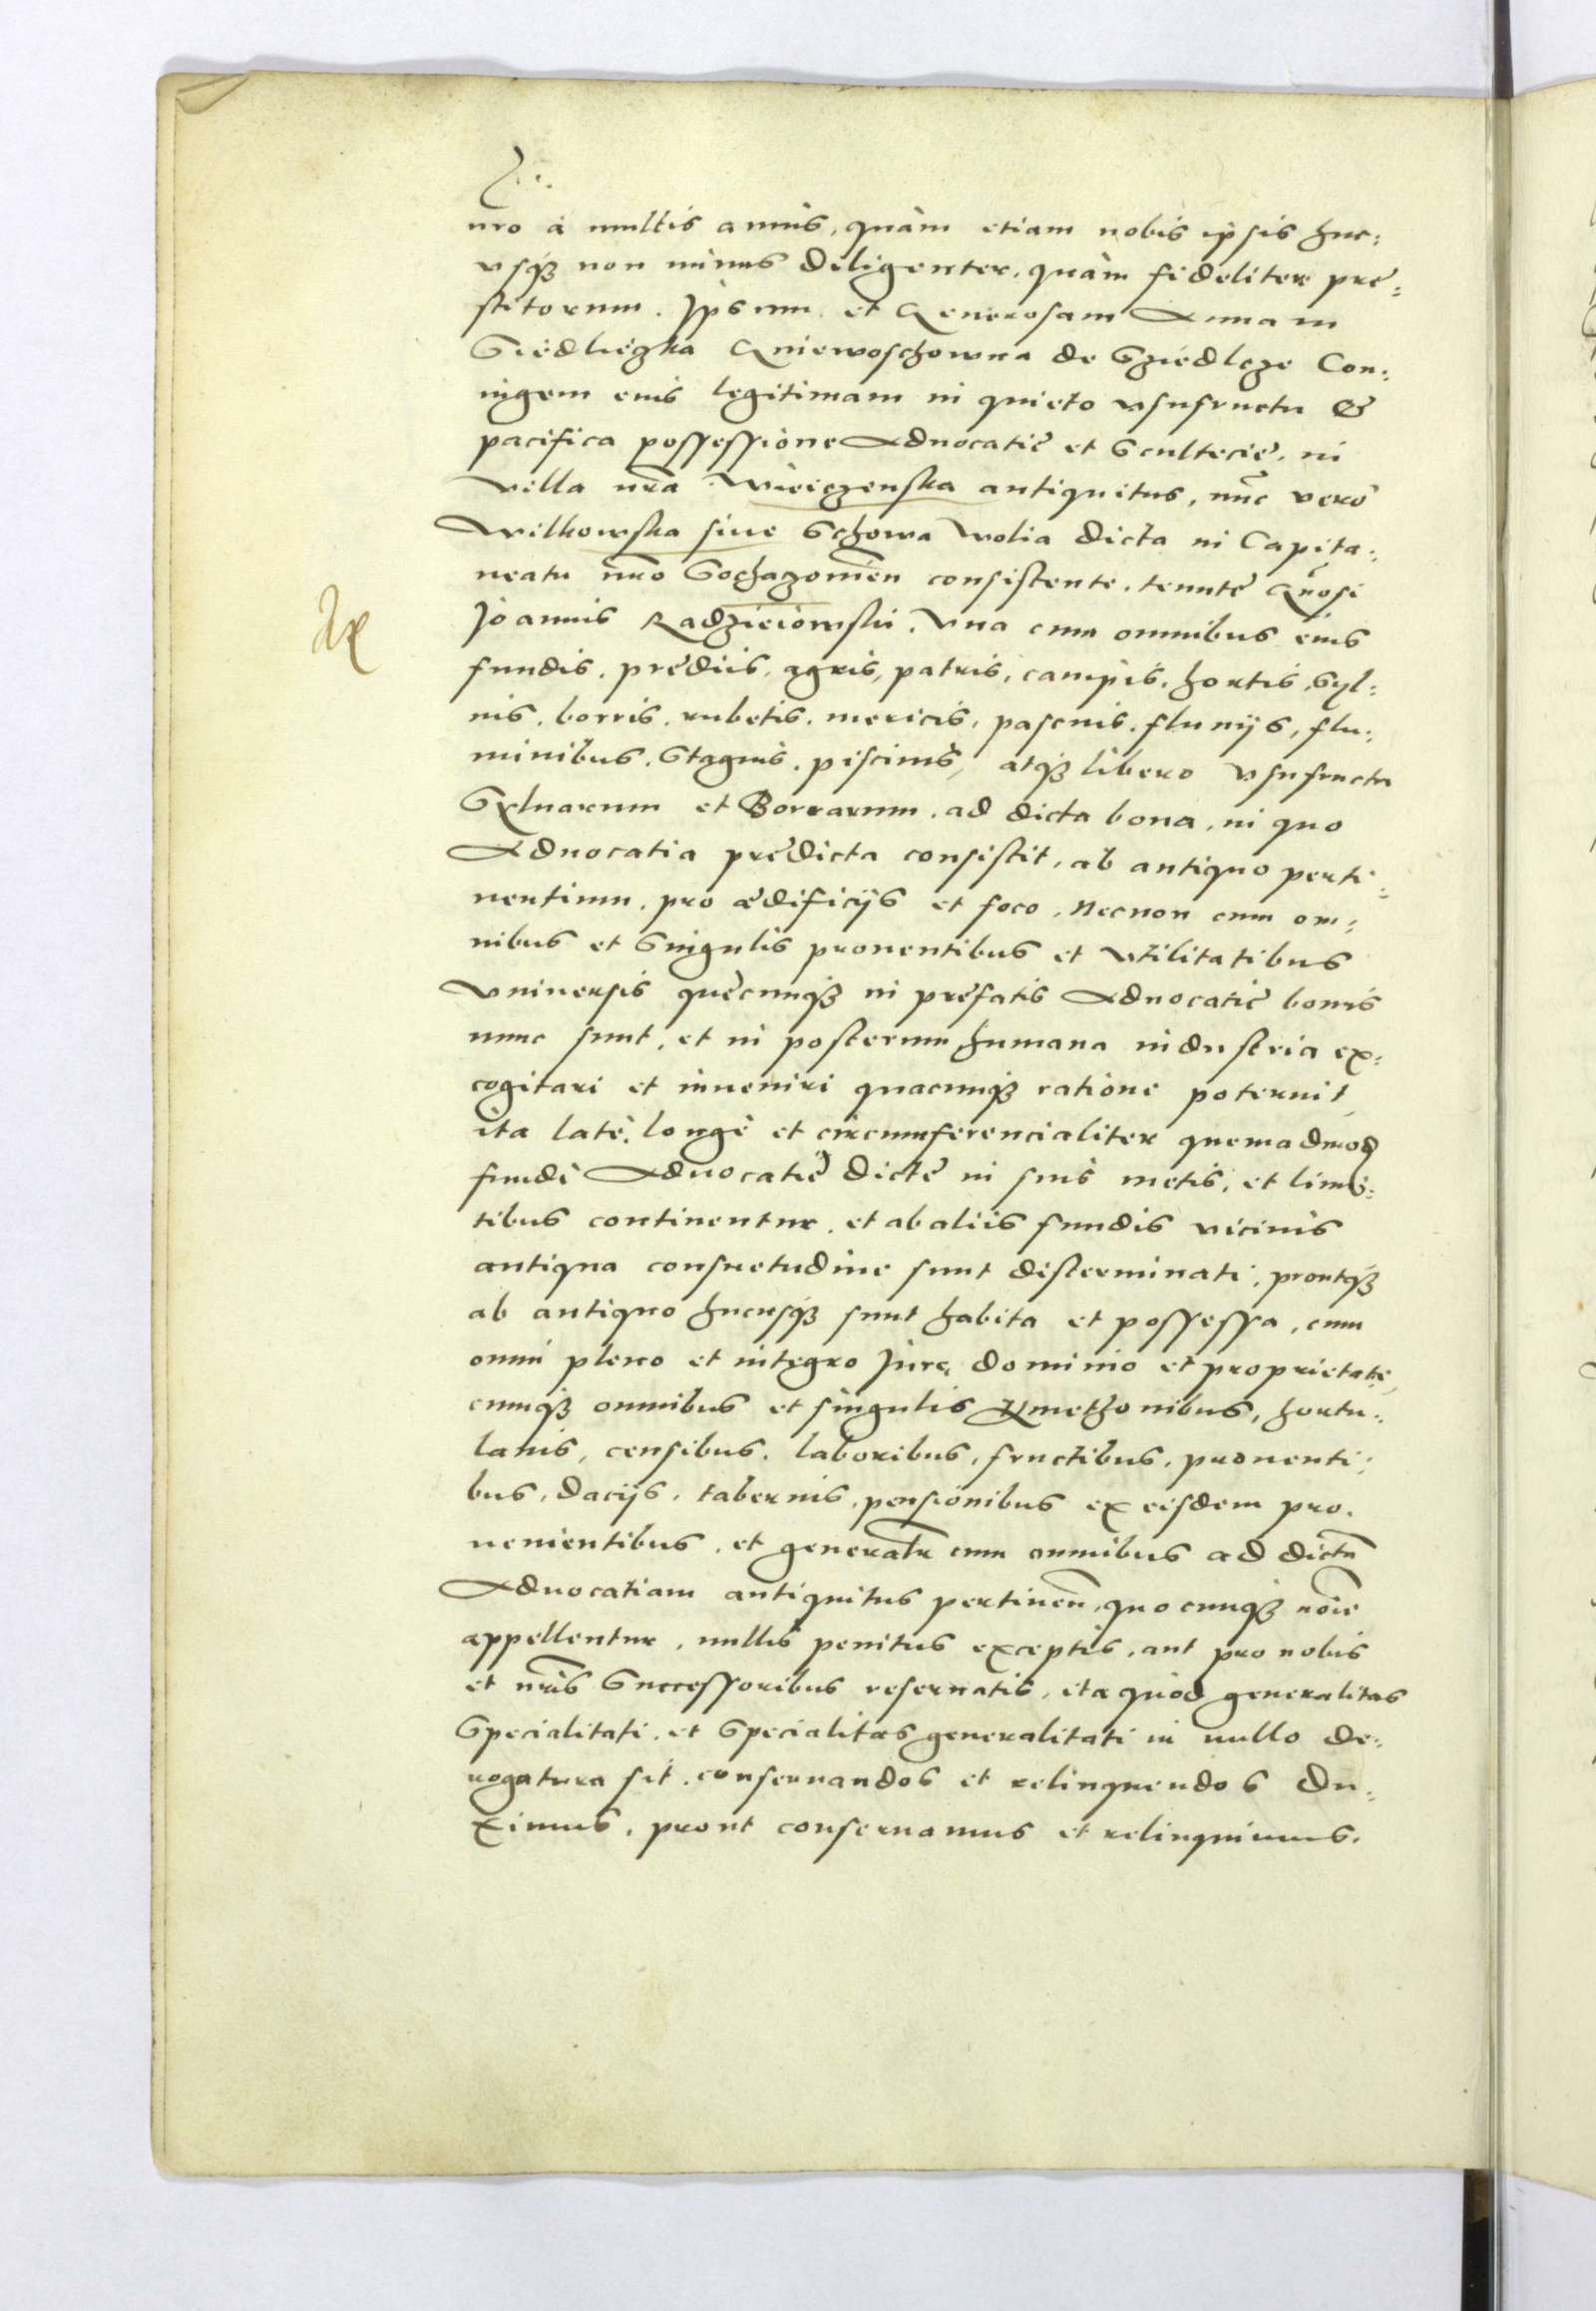 nro à multis annis, quàm etiam nobis ipsis huc:
usq3 non minus diligenter, quàm fideliter pre:
stitorum. Ipsum et Generosam Annam
Siedlieczka Gniewoschowna de Sziedlcze Con:
iugem eius legitimam in quieto usufructu &
pacifica possessione Advocatie et Scultecie, in
villa nrã Wieiczenska antiquitus, nũc verò
Wilkowska sive Schowa Wolia dicta in Capita:
neatu nrõ Sochazomẽn consistente, tenutę Gñosi
Joannis Radzieiowski. Una cum omnibus eius
fundis, prediis, agris, patris, campis, hortis, Syl:
vis, borris, rubetis, mericis, pascuis, fluviis, flu:
minibus, Stagnis, piscinis, atq3 libero usufructu
Sylvarum et Borrarum, ad dicta bona, in quo
Advocatia predicta consistit, ab antiquo perti:
nentium, pro ædificijs et foco, Necnon cum om:
nibus et Singulis proventibus et utilitatibus
universis quecunq3 in prefatis Advocatie bonis
nunc sunt, et in posterum humana industria ex:
cogitari et inveniri quacunq3 ratione poterunt,
ita latè, longè et circumferencialiter quemadmod
fundi Advocatie dicte in suis metis, et limi:
tibus continentur, et ab aliis fundis vicinis
antiqua consuetudine sunt disterminati, proutq3
ab antiquo hucusq3 sunt habita et possessa, cum
omni pleno et integro Jure, dominio et proprietate,
cumq3 omnibus et singulis Kmethonibus, hortu:
lanis, censibus, laboribus, fructibus, proventi:
bus, dacijs, tabernis, pensionibus ex eisdem pro.
venientibus, et generalr cum omnibus ad dictã
Advocatiam antiquitus pertineñ, quocunq3 noĩe
appellentur, nullis penitus exceptis, aut pro nobis
et nrĩs Successoribus reservatis, ita quòd generalitas
Specialitati, et Specialitas generalitati in nullo de:
rogatura sit, conservandos et relinquendos du:
ximus, prout conservamus et relinquimus.